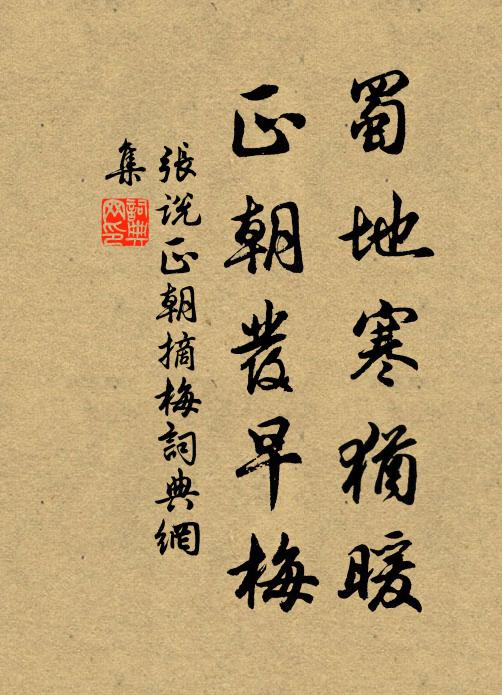 蜀地寒猶暖
正朝發早梅
張說正朝摘梅詞典網
集
詞典網印